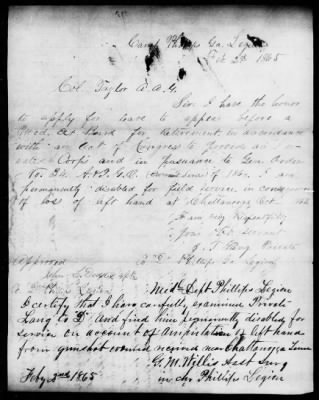 Camp Phillips Ga. Legion
Feb 2d 1865
Col. Taylor A. A. G.
Sir I have the honor
to apply for leave to appear before a
Med. Board for Retirement in accordance
with an act of Congress to provide an
Corps and in pursuance to Gen. Order
No. 34. A & I. G. O. series of 1864. I am
permanently disabled for field service in consequence
of loss of left hand at Chattanooga Oct
I am very Respectfully
your Obt servant
J. T. Lang Private
Co "D" Phillips Ga Legion
Approved
Phillips Legion
Medc Dept Phillips Legion
I certify that I have carefully examined Private
Lang Co "D" and find him permanently disabled for
service on account of Amputation of left hand
from gunshot wound received near Chattanooga Tenn
G. M. Willis Asst Surg
in chr Phillips Legion
Feby 2nd 1865